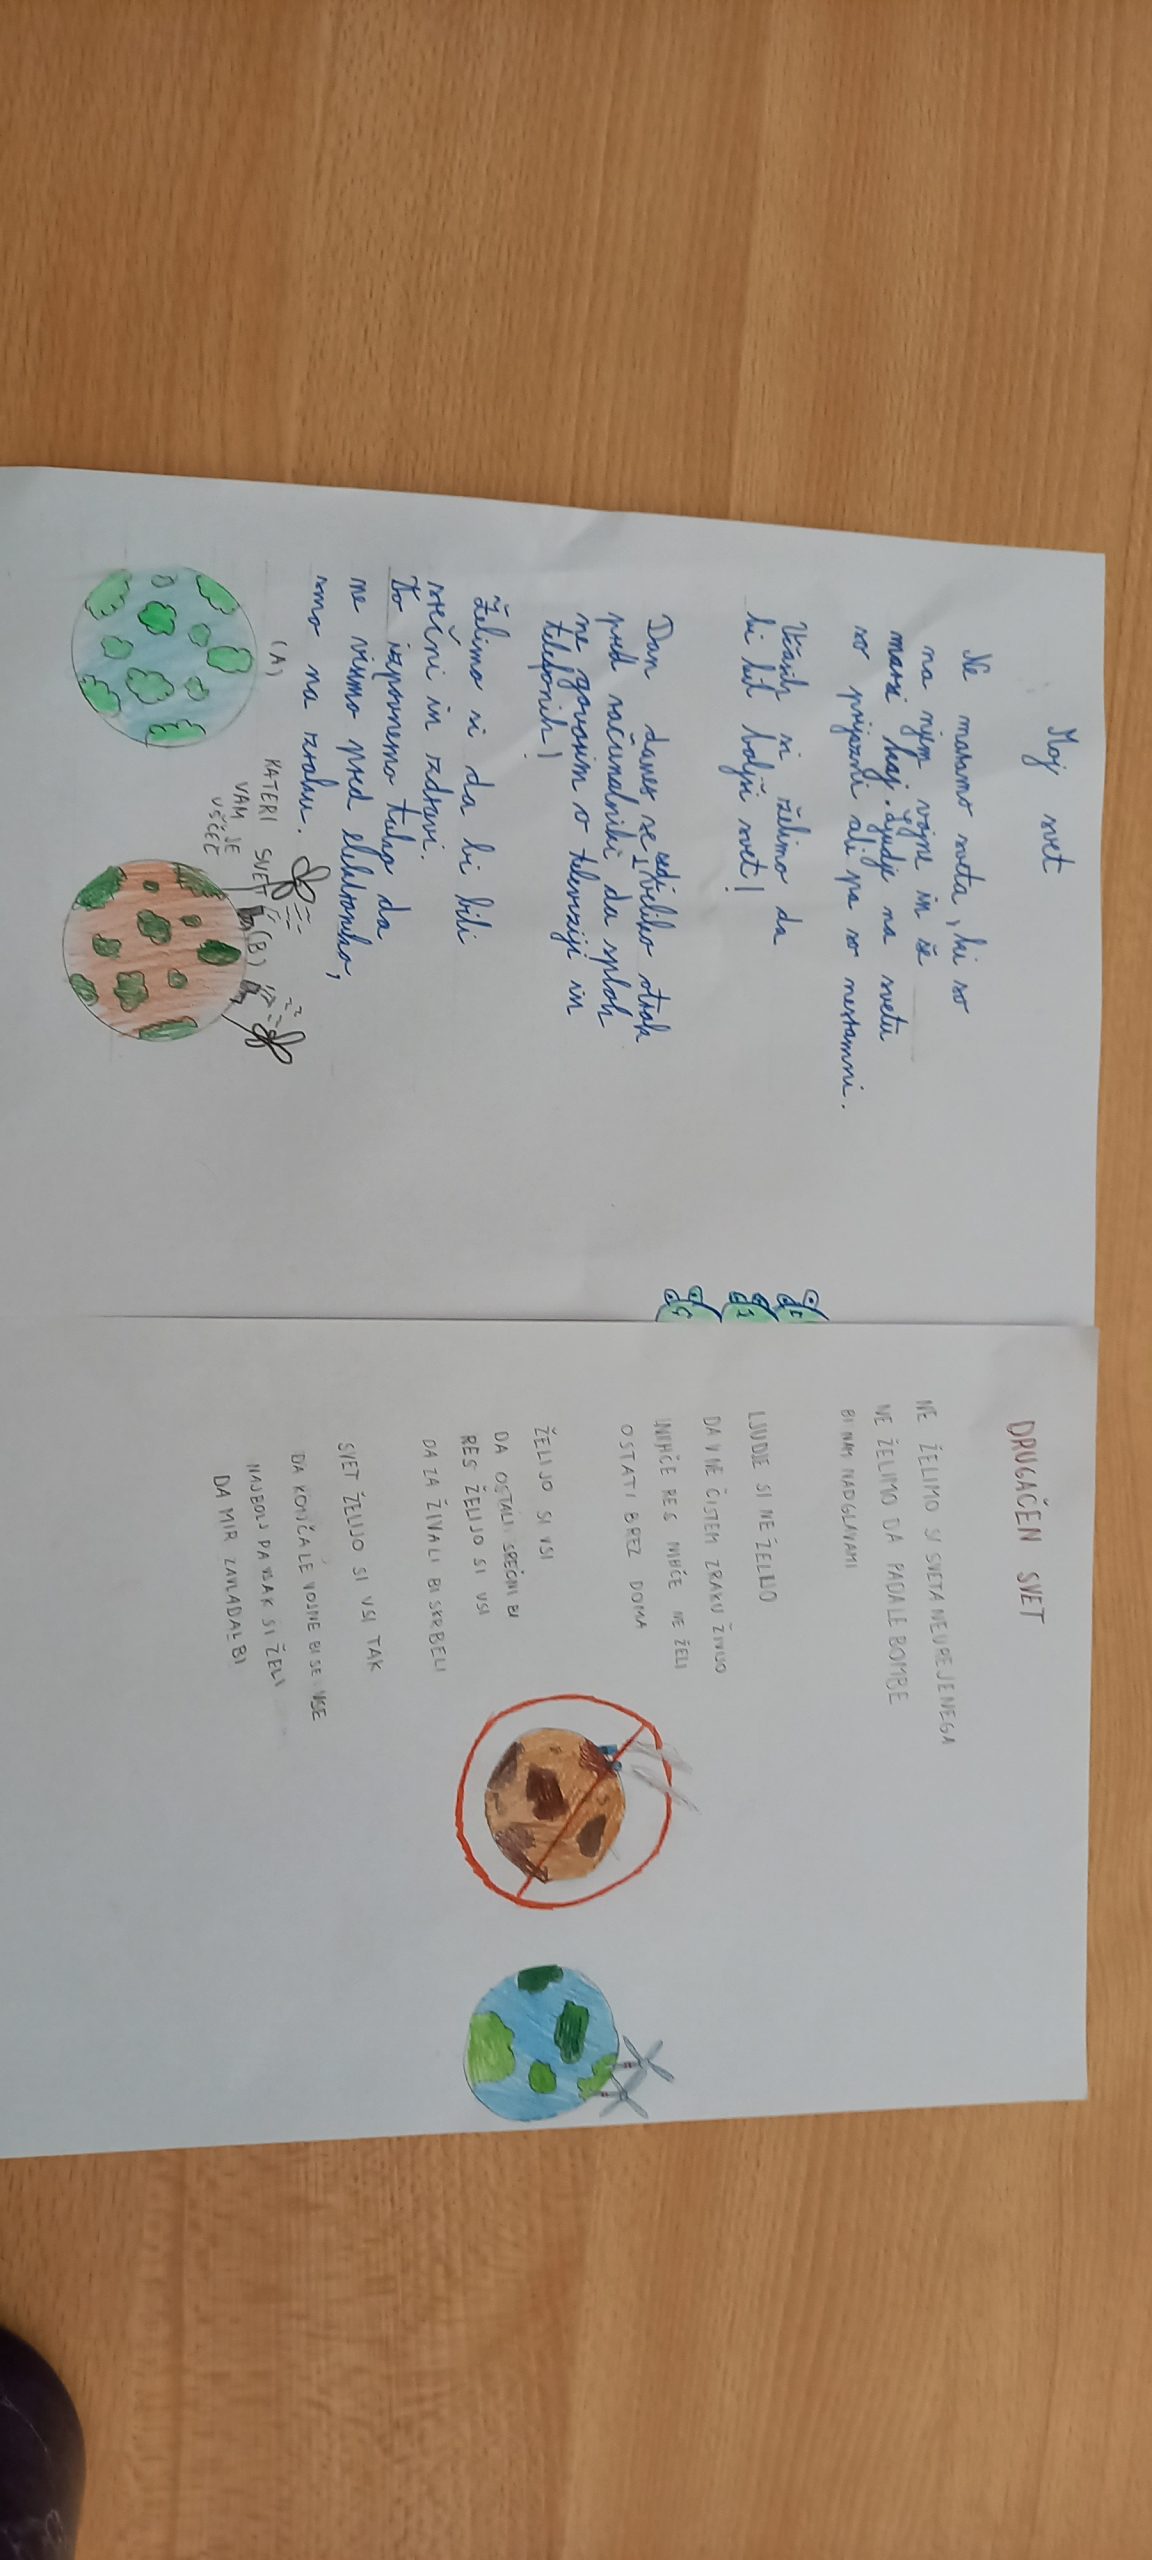 Moj svet
Ne maramo sveta, ki so
na njem vojne in še
marsi kaj. Ljudje na svetu
so prijazni ali pa so nesramni.
Včasih si želimo da
bi bil boljši svet!
Dan danes se sedi veliko otrok
pred računalniki da sploh
ne govorim o televiziji in
telefonih!
Želimo si da bi bili
srečni in zdravi.
To izpovnemo tako da
ne visimo pred elektroniko,
smo na zraku.
(A)
KATERI SVET (B)
VAM JE
VŠČEČ
DRUGAČEN SVET
NE ŽELIMO SI SVETA NEUREJENEGA
NE ŽELIMO DA PADALE BOMBE
BI NAM NAD GLAVAMI
LJUDJE SI NE ŽELIJO
DA V NE ČISTEM ZRAKU ŽIVIJO
NIHČE RES NIHČE NE ŽELI
OSTATI BREZ DOMA
ŽELIJO SI VSI
DA OSTALI SREČNI BI
RES ŽELIJO SI VSI
DA ZA ŽIVALI BI SKRBELI
SVET ŽELIJO SI VSI TAK
DA KONČALE VOJNE BI SE VSE
NAJBOLJ PA VSAK SI ŽELI
DA MIR ZAVLADAL BI